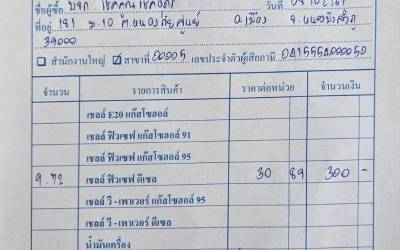 ชื่อผู้ซื้อ บจก. วันที่
ที่อยู่ 181 ม.10 อ.เมือง จ.หนองบัวลำภู
39000
สำนักงานใหญ่ สาขาที่ 00005 เลขประจำตัวผู้เสียภาษี
จำนวน รายการสินค้า ราคาต่อหน่วย จำนวนเงิน
เชลล์ E20 แก๊สโซฮอล์
เชลล์ ฟิวเซฟ แก๊สโซฮอล์ 91
เชลล์ ฟิวเซฟ แก๊สโซฮอล์ 95
9.72 เชลล์ ฟิวเซฟ ดีเซล 30 89 300 -
เชลล์ วี - เพาเวอร์ แก๊สโซฮอล์ 95
เชลล์ วี - เพาเวอร์ ดีเซล
น้ำมันเครื่อง